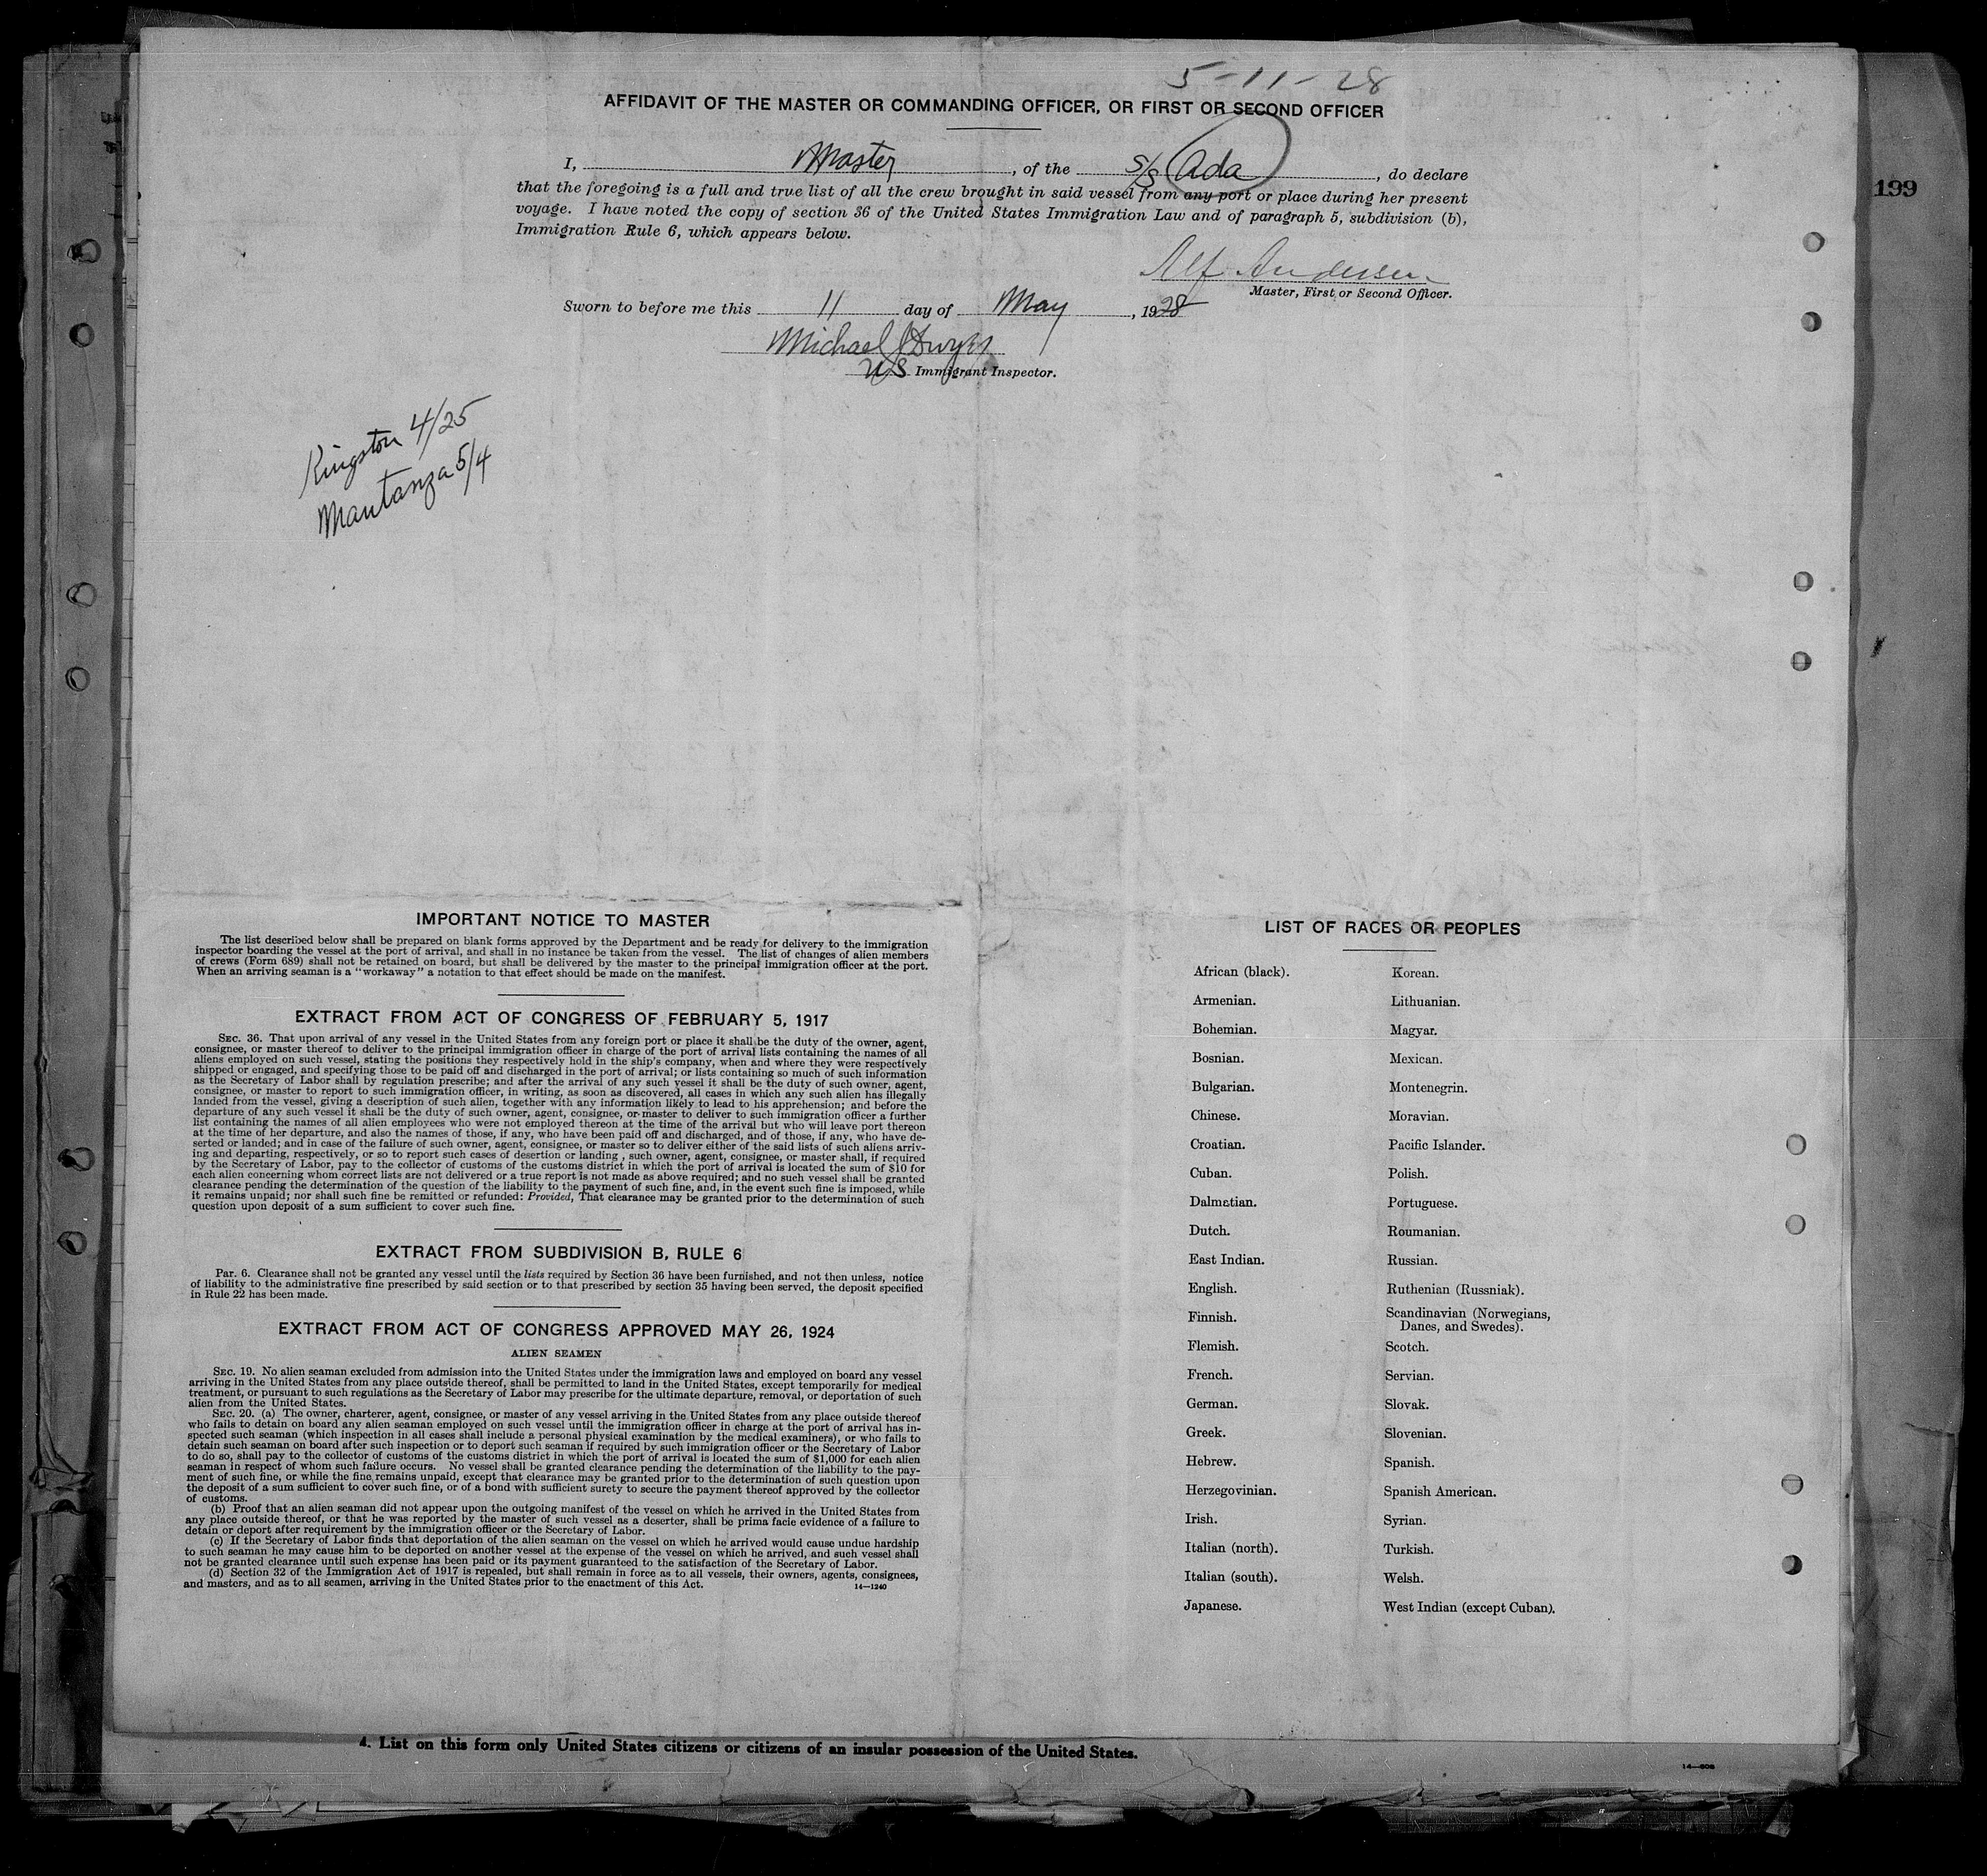 5-11-28
AFFIDAVIT OF THE MASTER OR COMMANDING OFFICER, OR FIRST OR SECOND OFFICER
I, Master, of the S/S Ada, do declare
that the foregoing is a full and true list of all the crew brought in said vessel from any port or place during her present
voyage. I have noted the copy of section 36 of the United States Immigration Law and of paragraph 5, subdivision (b),
Immigration Rule 6, which appears below.
199
Alf Andersen
Master, First or Second Officer.
Sworn to before me this 11 day of May, 1928
Michael J Dwyer
US Immigrant Inspector.
Kingston 4/25
Mantanza 5/4
IMPORTANT NOTICE TO MASTER
The list described below shall be prepared on blank forms approved by the Department and be ready for delivery to the immigration
inspector boarding the vessel at the port of arrival, and shall in no instance be taken from the vessel. The list of changes of alien members
of crews (Form 689) shall not be retained on board, but shall be delivered by the master to the principal immigration officer at the port.
When an arriving seaman is a "workaway" a notation to that effect should be made on the manifest.
EXTRACT FROM ACT OF CONGRESS OF FEBRUARY 5, 1917
SEC. 36. That upon arrival of any vessel in the United States from any foreign port or place it shall be the duty of the owner, agent,
consignee, or master thereof to deliver to the principal immigration officer in charge of the port of arrival lists containing the names of all
aliens employed on such vessel, stating the positions they respectively hold in the ship's company, when and where they were respectively
shipped or engaged, and specifying those to be paid off and discharged in the port of arrival; or lists containing so much of such information
as the Secretary of Labor shall by regulation prescribe; and after the arrival of any such vessel it shall be the duty of such owner, agent,
consignee, or master to report to such immigration officer, in writing, as soon as discovered, all cases in which any such alien has illegally
landed from the vessel, giving a description of such alien, together with any information likely to lead to his apprehension; and before the
departure of any such vessel it shall be the duty of such owner, agent, consignee, or master to deliver to such immigration officer a further
list containing the names of all alien employees who were not employed thereon at the time of the arrival but who will leave port thereon
at the time of her departure, and also the names of those, if any, who have been paid off and discharged, and of those, if any, who have de-
serted or landed; and in case of the failure of such owner, agent, consignee, or master so to deliver either of the said lists of such aliens arriv-
ing and departing, respectively, or so to report such cases of desertion or landing, such owner, agent, consignee, or master shall, if required
by the Secretary of Labor, pay to the collector of customs of the customs district in which the port of arrival is located the sum of $10 for
each alien concerning whom correct lists are not delivered or a true report is not made as above required; and no such vessel shall be granted
clearance pending the determination of the question of the liability to the payment of such fine, and, in the event such fine is imposed, while
it remains unpaid; nor shall such fine be remitted or refunded: Provided, That clearance may be granted prior to the determination of such
question upon deposit of a sum sufficient to cover such fine.
EXTRACT FROM SUBDIVISION B, RULE 6
Par. 6. Clearance shall not be granted any vessel until the lists required by Section 36 have been furnished, and not then unless, notice
of liability to the administrative fine prescribed by said section or to that prescribed by section 35 having been served, the deposit specified
in Rule 22 has been made.
EXTRACT FROM ACT OF CONGRESS APPROVED MAY 26, 1924
ALIEN SEAMEN
SEC. 19. No alien seaman excluded from admission into the United States under the immigration laws and employed on board any vessel
arriving in the United States from any place outside thereof, shall be permitted to land in the United States, except temporarily for medical
treatment, or pursuant to such regulations as the Secretary of Labor may prescribe for the ultimate departure, removal, or deportation of such
alien from the United States.
SEC. 20. (a) The owner, charterer, agent, consignee, or master of any vessel arriving in the United States from any place outside thereof
who fails to detain on board any alien seaman employed on such vessel until the immigration officer in charge at the port of arrival has in-
spected such seaman (which inspection in all cases shall include a personal physical examination by the medical examiners), or who fails to
detain such seaman on board after such inspection or to deport such seaman if required by such immigration officer or the Secretary of Labor
to do so, shall pay to the collector of customs of the customs district in which the port of arrival is located the sum of $1,000 for each alien
seaman in respect of whom such failure occurs. No vessel shall be granted clearance pending the determination of the liability to the pay-
ment of such fine, or while the fine remains unpaid, except that clearance may be granted prior to the determination of such question upon
the deposit of a sum sufficient to cover such fine, or of a bond with sufficient surety to secure the payment thereof approved by the collector
of customs.
(b) Proof that an alien seaman did not appear upon the outgoing manifest of the vessel on which he arrived in the United States from
any place outside thereof, or that he was reported by the master of such vessel as a deserter, shall be prima facie evidence of a failure to
detain or deport after requirement by the immigration officer or the Secretary of Labor.
(c) If the Secretary of Labor finds that deportation of the alien seaman on the vessel on which he arrived would cause undue hardship
to such seaman he may cause him to be deported on another vessel at the expense of the vessel on which he arrived, and such vessel shall
not be granted clearance until such expense has been paid or its payment guaranteed to the satisfaction of the Secretary of Labor.
(d) Section 32 of the Immigration Act of 1917 is repealed, but shall remain in force as to all vessels, their owners, agents, consignees,
and masters, and as to all seamen, arriving in the United States prior to the enactment of this Act.
14—1240
LIST OF RACES OR PEOPLES
African (black).
Armenian.
Bohemian.
Bosnian.
Bulgarian.
Chinese.
Croatian.
Cuban.
Dalmatian.
Dutch.
East Indian.
English.
Finnish.
Flemish.
French.
German.
Greek.
Hebrew.
Herzegovinian.
Irish.
Italian (north).
Italian (south).
Japanese.
Korean.
Lithuanian.
Magyar.
Mexican.
Montenegrin.
Moravian.
Pacific Islander.
Polish.
Portuguese.
Roumanian.
Russian.
Ruthenian (Russniak).
Scandinavian (Norwegians,
Danes, and Swedes).
Scotch.
Servian.
Slovak.
Slovenian.
Spanish.
Spanish American.
Syrian.
Turkish.
Welsh.
West Indian (except Cuban).
4. List on this form only United States citizens or citizens of an insular possession of the United States.